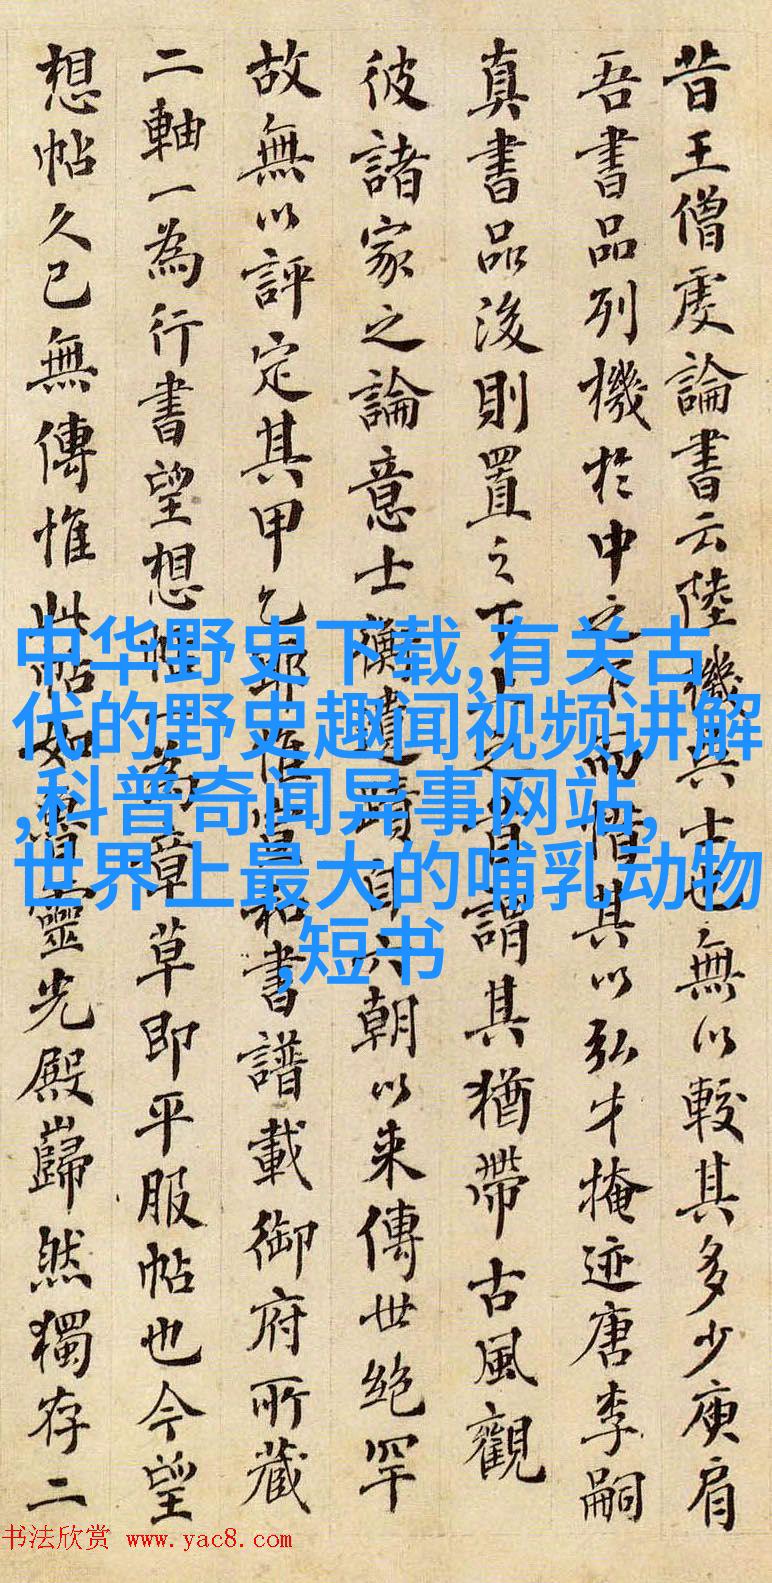 昔王僧虔論書云陸機
士也無以較其多少庾肩
吾書品列機於中之下而惜其以弘才掩迹唐李嗣
真書品後則置之下上
謂其猶帶古風觀
彼諸家之論意士衡遺蹟自六朝以来傳世絶罕
故無以評定其甲乙耶惟宣和書譜載御府所藏
二軸一為行書望想帖一為章草即平服帖也今望
想帖久已無傳惟此帖如魯靈光殿巋然獨存二
中华野史下载,有关古
代的野史趣闻视频讲解
,科普奇闻异事网站,
世界上最大的哺乳动物
,短书
书法欣赏 www.yac8.com